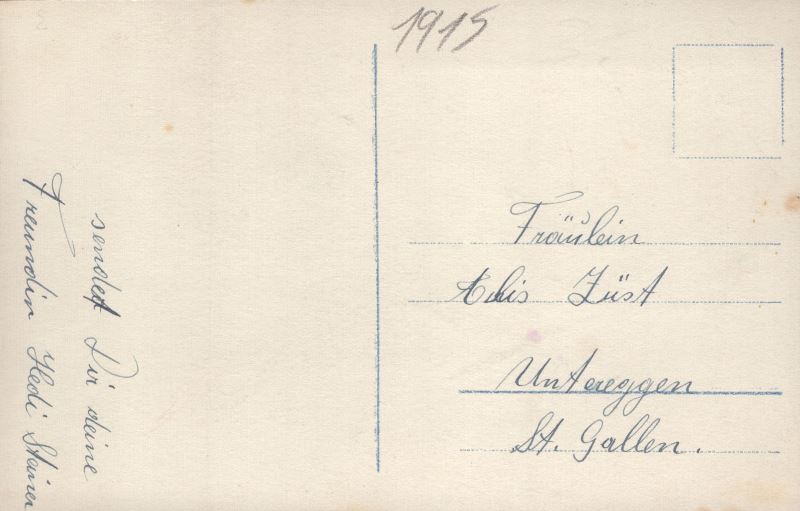 1915
sendet Dir deine
Freundin Hedi Steiner
Fräulein
Züst
Untereggen
St. Gallen.